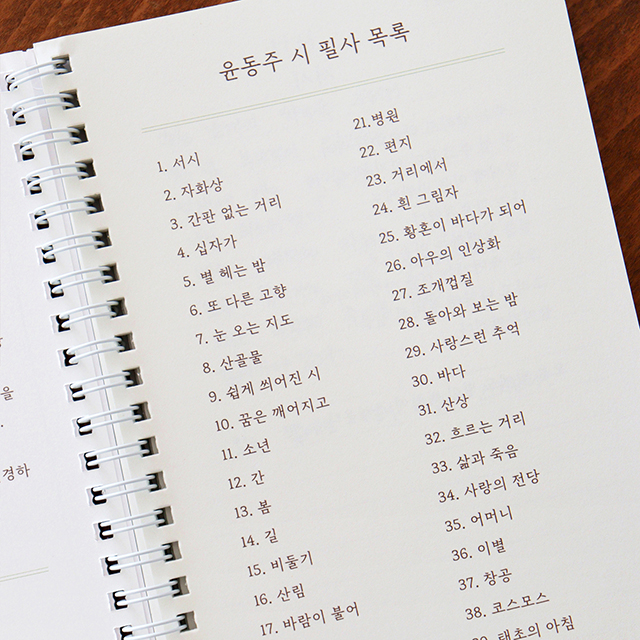 윤동주 시 필사 목록
1. 서시
2. 자화상
3. 간판 없는 거리
4. 십자가
5. 별 헤는 밤
6. 또 다른 고향
7. 눈 오는 지도
8. 산골물
9. 쉽게 씌어진 시
10. 꿈은 깨어지고
11. 소년
12. 간
13. 봄
14. 길
15. 비둘기
16. 산림
17. 바람이 불어
21.병원
22. 편지
23. 거리에서
24. 흰 그림자
25. 황혼이 바다가 되어
26. 아우의 인상화
27. 조개껍질
28. 돌아와 보는 밤
29. 사랑스런 추억
30. 바다
31. 산상
32. 흐르는 거리
33. 삶과 죽음
34. 사랑의 전당
35. 어머니
36. 이별
37. 창공
38. 코스모스
39. 태초의 아침
을
경하